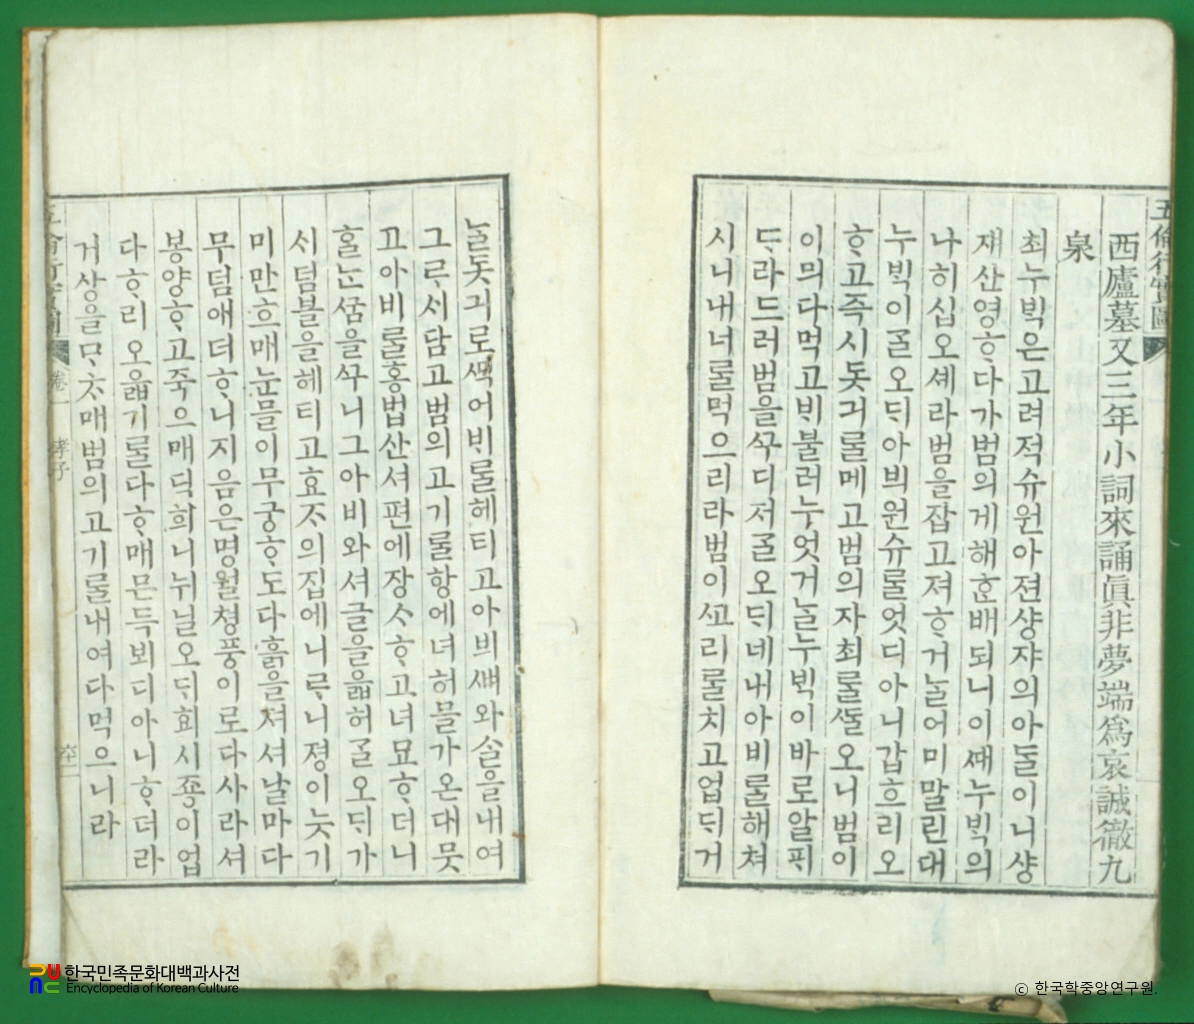 五倫行實圖
西廬墓又三年小詞來誦眞非夢端爲哀誠徹九
泉
최누ᄇᆡᆨ은고려적슈원아젼샹쟈의아ᄃᆞᆯ이니샹
ᄌᆡ산영ᄒᆞ다가범의게해ᄒᆞᆫ배되니이ᄣᅢ누ᄇᆡᆨ의
나히십오셰라범을잡고져ᄒᆞ거ᄂᆞᆯ어미말린대
누ᄇᆡᆨ이ᄀᆞᆯ오ᄃᆡ아븨원슈ᄅᆞᆯ엇디아니갑흐리오
ᄒᆞ고즉시돗긔ᄅᆞᆯ메고범의자최ᄅᆞᆯᄯᆞᆯ오니범이
이믜다먹고ᄇᆡ불러누엇거ᄂᆞᆯ누ᄇᆡᆨ이바로알ᄑᆡ
ᄃᆞ라드러범을ᄭᅮ디저ᄀᆞᆯ오ᄃᆡ네내아비ᄅᆞᆯ해쳐
시니내너ᄅᆞᆯ먹으리라범이ᄭᅩ리ᄅᆞᆯ치고업ᄃᆡ거
ᄂᆞᆯ돗긔로ᄶᅵᆨ어ᄇᆡᄅᆞᆯ헤티고아븨ᄲᅧ와ᄉᆞᆯ을내여
그ᄅᆞ세담고범의고기ᄅᆞᆯ항에녀허믈가온대뭇
고아비ᄅᆞᆯ홍법산셔편에장ᄉᆞᄒᆞ고녀묘ᄒᆞ더니
ᄒᆞᄅᆞᄂᆞᆫᄭᅮᆷ을ᄭᅮ니그아비와셔글을읇허ᄀᆞᆯ오ᄃᆡ가
시덤블을헤티고효ᄌᆞ의집에니ᄅᆞ니졍이늣기
미만흐매눈믈이무궁ᄒᆞ도다흙을져셔날마다
무덤애더ᄒᆞ니지음은명월쳥풍이로다사라셔
봉양ᄒᆞ고죽으매딕희니뉘닐오ᄃᆡ회시죵이업
다ᄒᆞ리오읇기ᄅᆞᆯ다ᄒᆞ매믄득뵈디아니ᄒᆞ더라
거상을ᄆᆞᄎᆞ매범의고기ᄅᆞᆯ내여다먹으니라
卷一
孝子
한국민족문화대백과사전
Encyclopedia of Korean Culture
ⓒ 한국학중앙연구원.